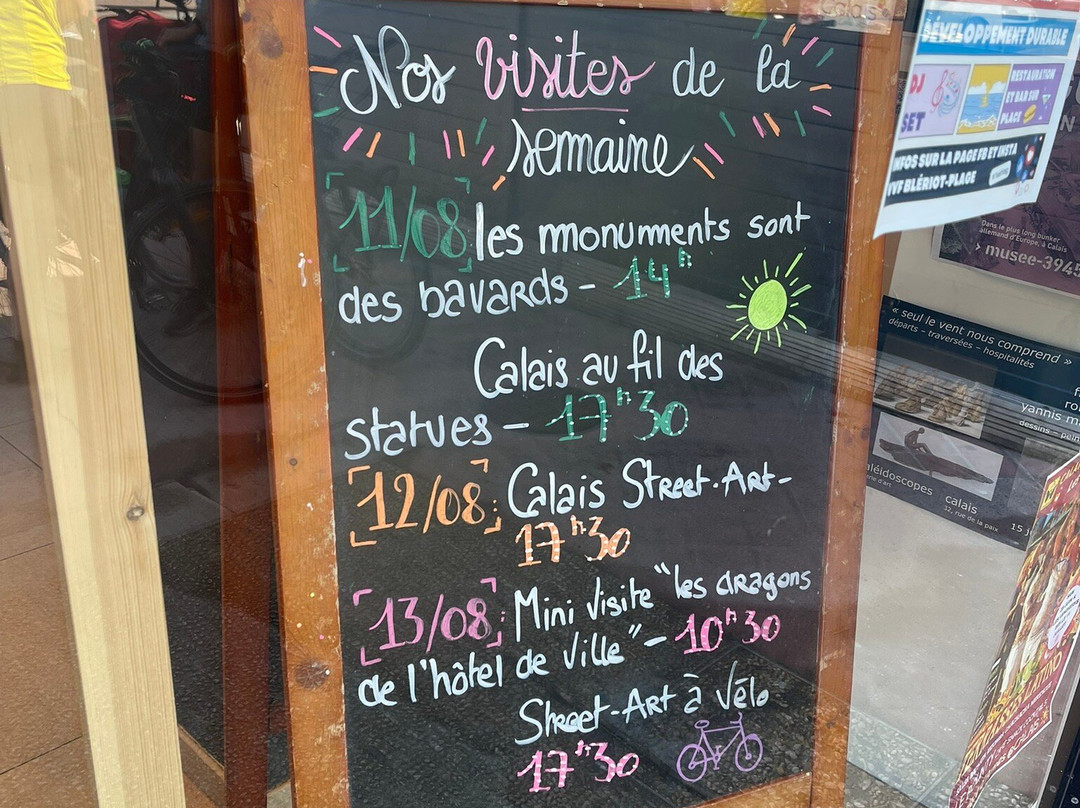 Nos visites de la
semaine
11/08 les monuments sont
des bavards - 14h
Calais au fil des
statues - 17h30
12/08: Calais Street-Art-
17h30
13/08: Mini visite "les dragons
de l'hôtel de ville" - 10h30
Street-Art à vélo
17h30
DÉVELOPPEMENT DURABLE
DJ
SET
RESTAURATION
ET BAR SUR
PLACE
INFOS SUR LA PAGE FB ET INSTA
VVF BLÉRIOT-PLAGE
Dans le plus long bunker
allemand d'Europe, à Calais
› musee-3945
« seul le vent nous comprend »
départs - traversées - hospitalités
yannis m
dessins - pein
léidoscopes calais
32, rue de la paix
15 j